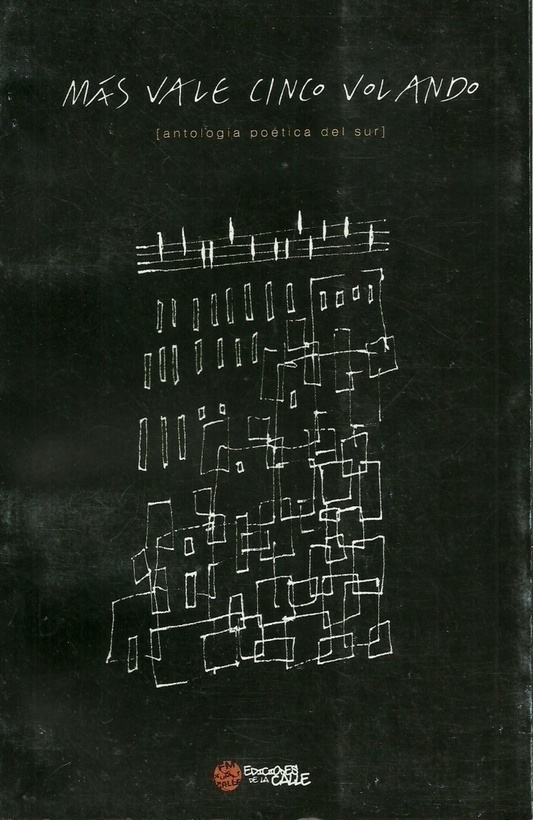 MÁS VALE CINCO VOLANDO
[antología poética del sur]
FM
LA
CALLE
EDICIONES
DE LA CALLE